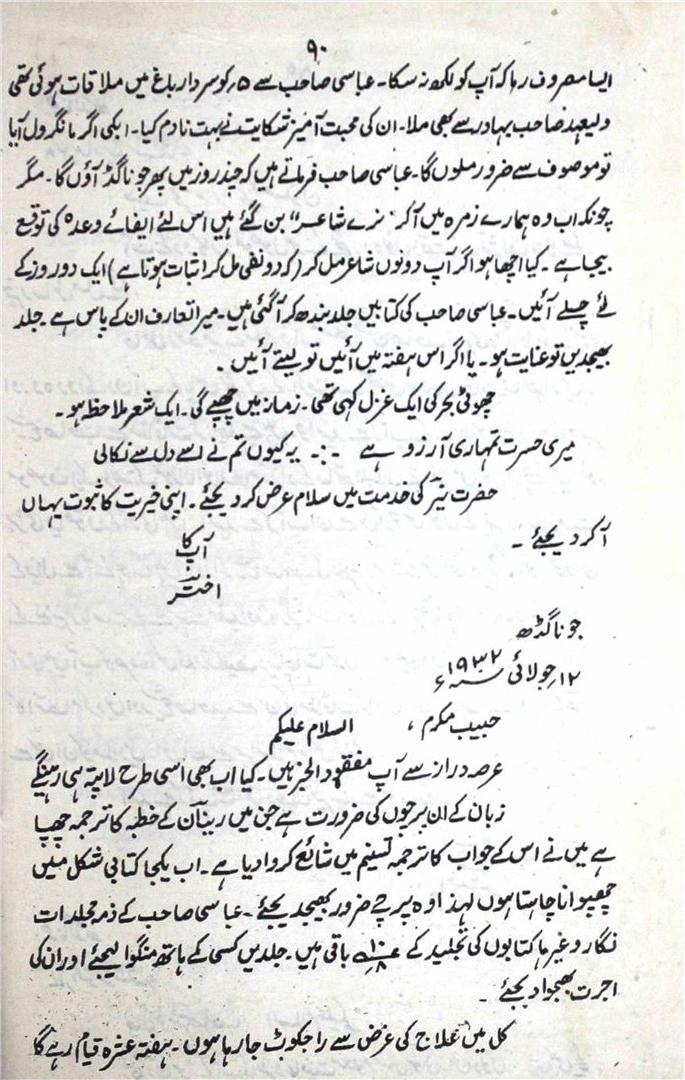 ۹۰
ایسا مصروف رہا کہ آپ کو لکھ نہ سکا۔ عباسی صاحب سے ۵؍ کو سردار باغ میں ملاقات ہوئی تھی
ولیعہد صاحب بہادر سے بھی ملا۔ ان کی محبت آمیز شکایت نے بہت نادم کیا۔ ابکی اگر مانگرول آیا
تو موصوف سے ضرور ملوں گا۔ عباسی صاحب فرماتے ہیں کہ چند روز میں پھر جوناگڈھ آؤں گا۔ مگر
چونکہ اب وہ ہمارے زمرہ میں آکر "نرے شاعر" بن گئے ہیں اس لئے ایفائے وعدہ کی توقع
بیجا ہے۔ کیا اچھا ہو اگر آپ دونوں شاعر مل کر (کہ دو نفی مل کر اثبات ہوتا ہے) ایک دو روز کے
لئے چلے آئیں۔ عباسی صاحب کی کتابیں جلد بندھ کر آگئی ہیں۔ میرا تعارف ان کے پاس ہے۔ جلد
بھیجدیں تو عنایت ہو۔ یا اگر اس ہفتہ میں آئیں تو لیتے آئیں۔
چھوٹی بحر کی ایک غزل کہی تھی۔ زمانہ میں چھپے گی۔ ایک شعر ملاحظہ ہو۔
میری حسرت تمہاری آرزو ہے ۔:۔ یہ کیوں تم نے اسے دل سے نکالی
حضرت نیّر کی خدمت میں سلام عرض کر دیجئے۔ اپنی خیریت کا ثبوت یہاں
آکر دیجئے۔
آپ کا
اختر
جوناگڈھ
۱۲؍ جولائی ۱۹۳۲ء
حبیب مکرم، السلام علیکم
عرصہ دراز سے آپ مفقود الخبر ہیں۔ کیا اب بھی اسی طرح لاپتہ ہی رہینگے
زبان کے ان پرچوں کی ضرورت ہے جن میں رینان کے خطبہ کا ترجمہ چھپا
ہے میں نے اس کے جواب کا ترجمہ تسنیم میں شائع کروا دیا ہے۔ اب یکجا کتابی شکل میں
چھپوانا چاہتا ہوں لہذا وہ پرچے ضرور بھیجدیجئے۔ عباسی صاحب کے ذمہ مجلدات
نگار وغیرہا کتابوں کی تجلید کے باقی ہیں۔ جلدیں کسی کے ہاتھ منگوا لیجئے اور ان کی
اجرت بھجوا دیجئے۔
کل میں علاج کی غرض سے راجکوٹ جا رہا ہوں۔ ہفتہ عشرہ قیام رہے گا